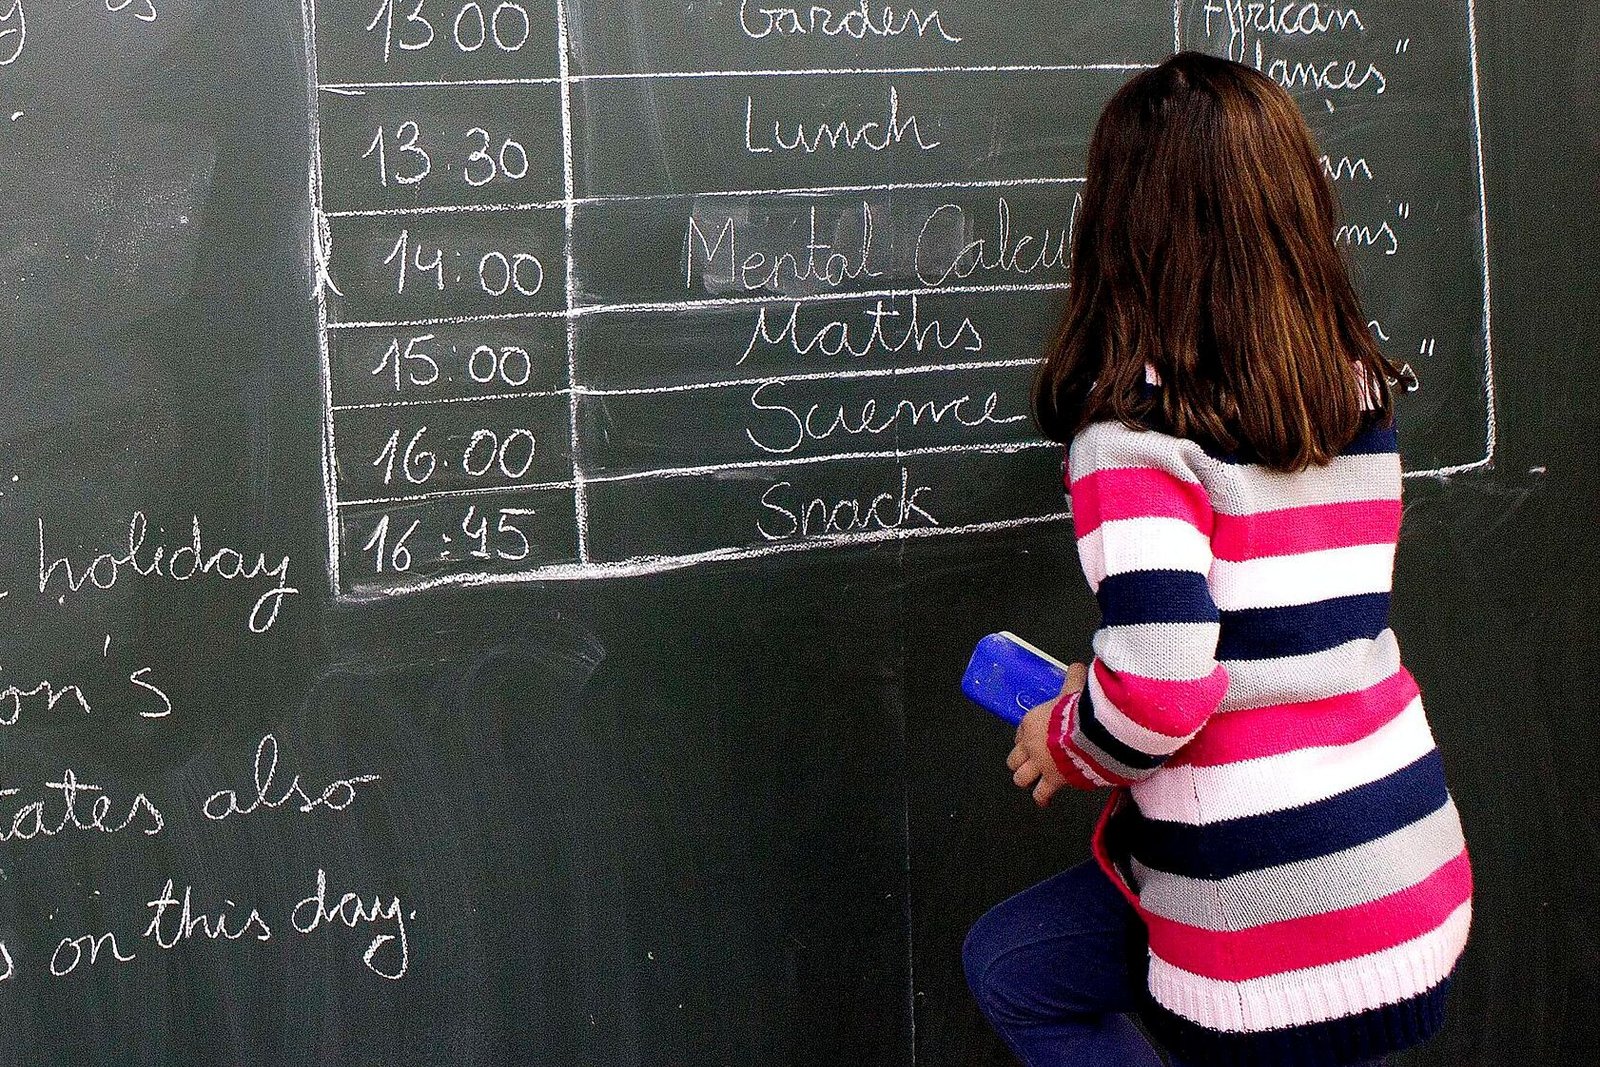 13:00 Garden African
dances"
13:30 Lunch
14:00 Mental Calcul
15:00 Maths
16:00 Science
16:45 Snack
holiday
on's
tates also
on this day.